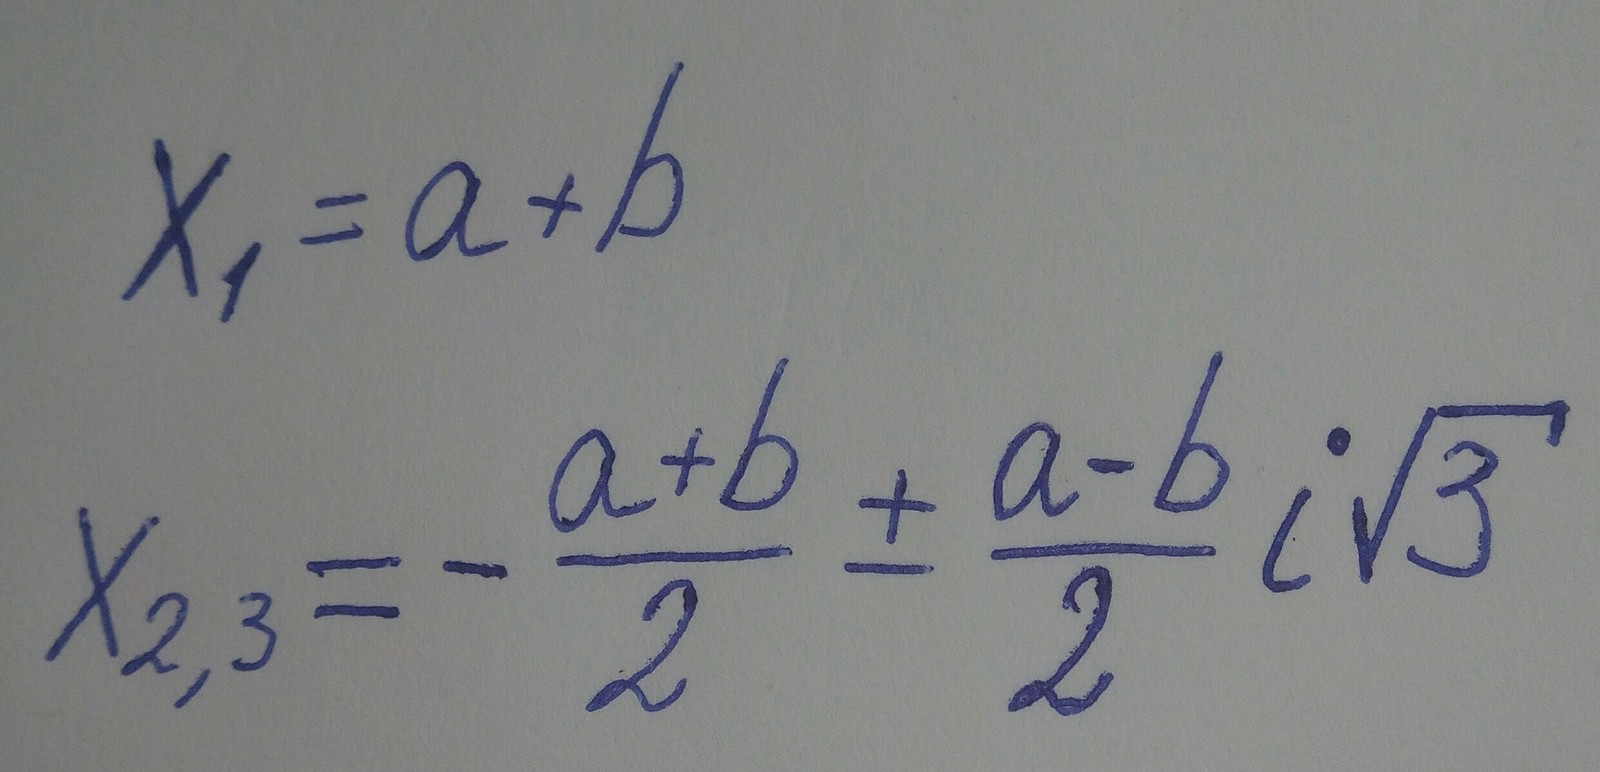 x₁ = a + b
x₂,₃ = - \frac{a+b}{2} ± \frac{a-b}{2} i√3